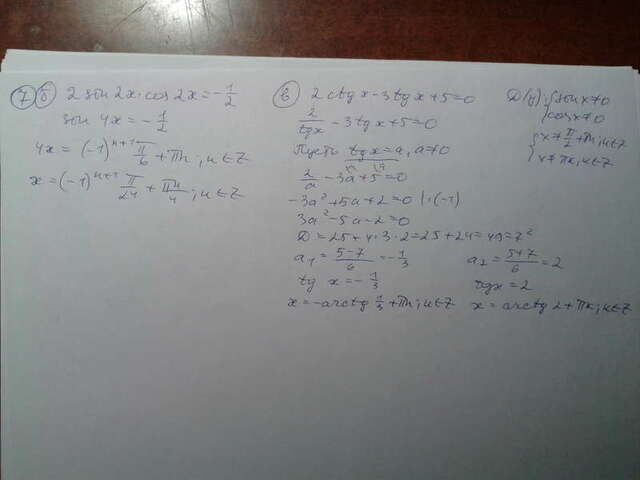 7 б 2 sin 2x·cos 2x = -1/2
sin 4x = -1/2
4x = (-1)^{n+1} π/6 + πn; n∈Z
x = (-1)^{n+1} π/24 + πn/4; n∈Z
в 2 ctg x - 3 tg x + 5 = 0
2/tg x - 3 tg x + 5 = 0
Пусть tg x = a, a ≠ 0
2/a - 3a + 5 = 0
-3a² + 5a + 2 = 0 |·(-1)
3a² - 5a - 2 = 0
D = 25 + 4·3·2 = 25 + 24 = 49 = 7²
a₁ = (5-7)/6 = -1/3 a₂ = (5+7)/6 = 2
tg x = -1/3 tg x = 2
x = -arctg 1/3 + πn; n∈Z x = arctg 2 + πn; n∈Z
D(y): { sin x ≠ 0
cos x ≠ 0
{ x ≠ π/2 + πn; n∈Z
x ≠ πn; n∈Z